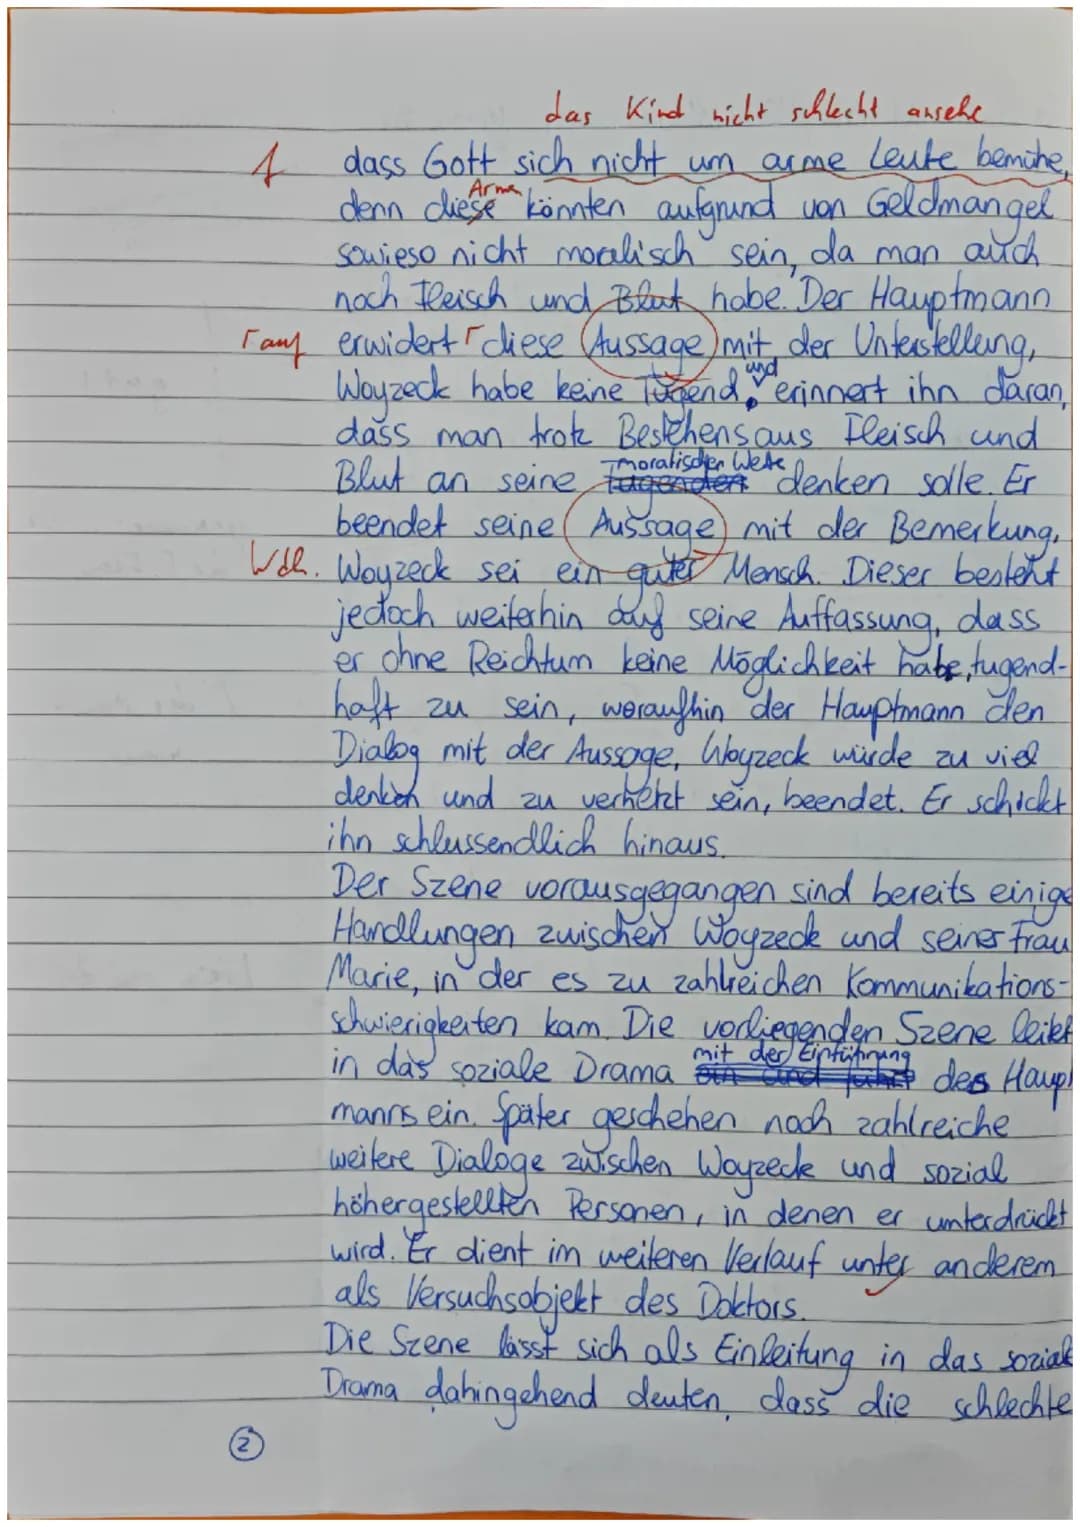 das Kind nicht schlecht ansehe
f dass Gott sich nicht um arme Leute bemühe,
Arme
denn diese könnten aufgrund von Geldmangel
sowieso nicht moralisch sein, da man auch
noch Fleisch und Blut habe. Der Hauptmann
Γ auf erwidert Γ diese Aussage mit der Unterstellung,
und
Woyzeck habe keine Tugend, erinnert ihn daran,
dass man trotz Bestehens aus Fleisch und
moralischen Werte
Blut an seine Tugenden denken solle. Er
beendet seine Aussage mit der Bemerkung,
Wdh. Woyzeck sei ein guter Mensch. Dieser besteht
jedoch weiterhin auf seine Auffassung, dass
er ohne Reichtum keine Möglichkeit habe, tugend-
haft zu sein, woraufhin der Hauptmann den
Dialog mit der Aussage, Woyzeck würde zu viel
denken und zu verhetzt sein, beendet. Er schickt
ihn schlussendlich hinaus.
Der Szene vorausgegangen sind bereits einige
Handlungen zwischen Woyzeck und seiner Frau
Marie, in der es zu zahlreichen Kommunikations-
schwierigkeiten kam. Die vorliegenden Szene leitet
mit der Einführung
in das soziale Drama ein und führt des Haupt
manns ein. Später geschehen noch zahlreiche
weitere Dialoge zwischen Woyzeck und sozial
höhergestellten Personen, in denen er unterdrückt
wird. Er dient im weiteren Verlauf unter anderem
als Versuchsobjekt des Doktors.
Die Szene lässt sich als Einleitung in das soziale
Drama dahingehend deuten, dass die schlechte
2